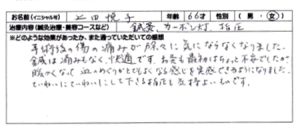 お名前(イニシャル可) 上田 悦子 年齢 66才 性別 (男・女)
治療内容(鍼灸治療・美容コースなど) 鍼灸、カーボン灯、指圧
※どのような効果があったか、また通っていただいての感想
手術後の傷の痛みが徐々に気にならなくなりました。
金鍼は痛みもなく、快適です。お灸も最初はちょっと不安でしたが
暖かくなって血のめぐりがとてもよくなる感じを実感できるようになりました。
ていねいにていねいにして下さる指圧も気持ちよいものです。